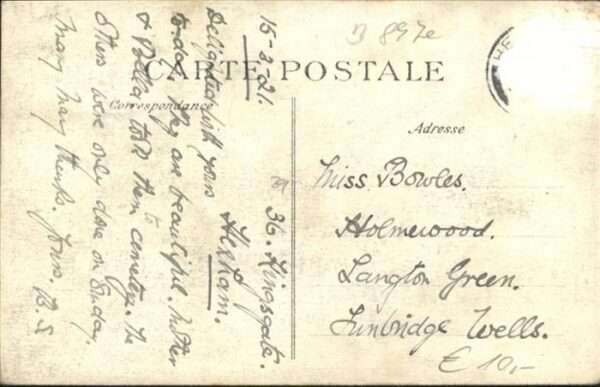 B 897e
HE
CARTE POSTALE
Correspondance
Adresse
15-3-21. 36. Kingsgate.
Hexham.
Delighted with yours
to-day, they are beautiful. Mother
& Bella took them to cemetery, the
others were only done on Sunday.
Many many thanks. Yours. B. S
Miss Bowles.
Holmewood.
Langton Green.
Tunbridge Wells.
€ 10,-